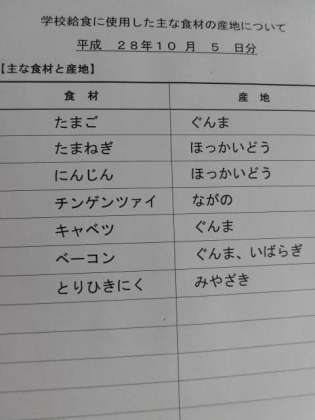 学校給食に使用した主な食材の産地について
平成 28年10 月 5 日分
【主な食材と産地】
食 材 産 地
たまご ぐんま
たまねぎ ほっかいどう
にんじん ほっかいどう
チンゲンツァイ ながの
キャベツ ぐんま
ベーコン ぐんま、いばらぎ
とりひきにく みやざき